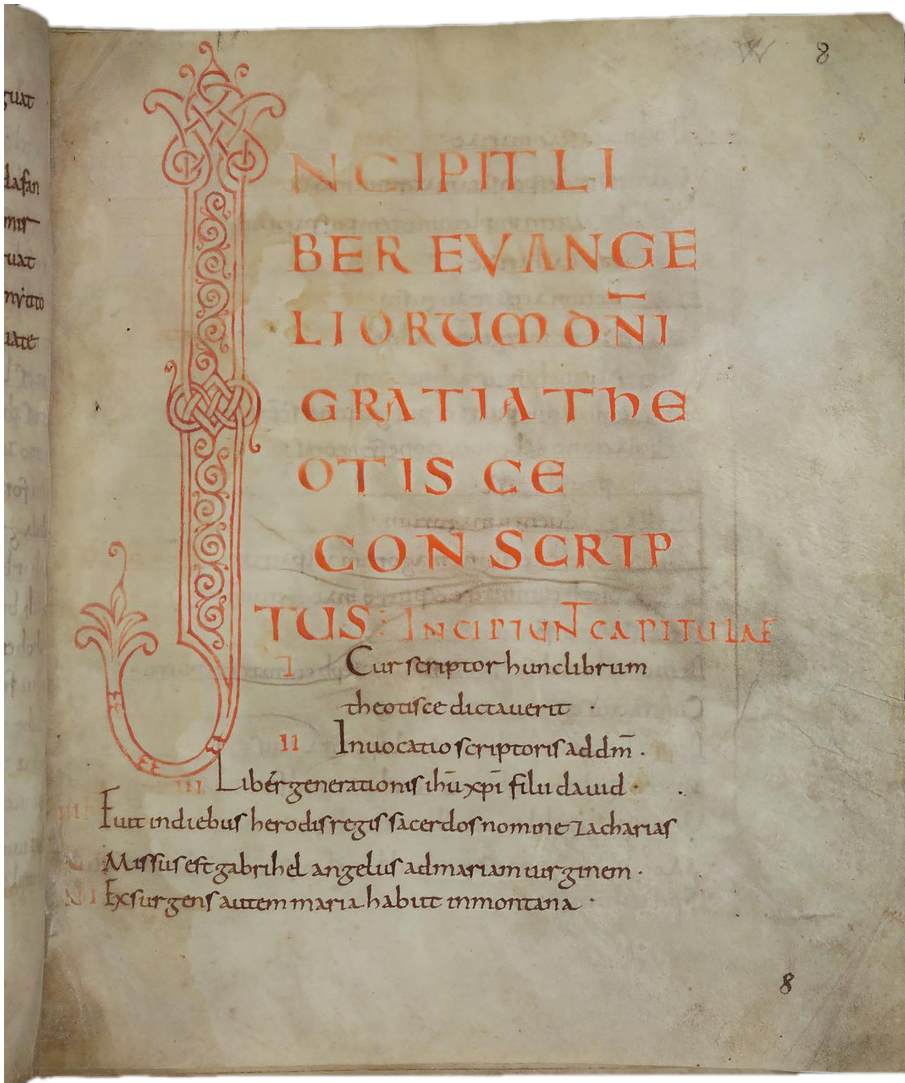 W 8
INCIPIT LI
BER EVANGE
LIORUM DN̄I
GRATIA THE
OTISCE
CONSCRIP
TUS: INCIPIUNT CAPITULAE
I Cur scriptor hunc librum
theotisce dictauerit ·
II Inuocatio scriptoris ad dm̄ ·
III Liber generationis ihū xpī filii dauid ·
IIII Fuit in diebus herodis regis sacerdos nomine zacharias
V Missus est gabrihel angelus ad mariam uirginem ·
VI Exsurgens autem maria habiit in montana ·
8